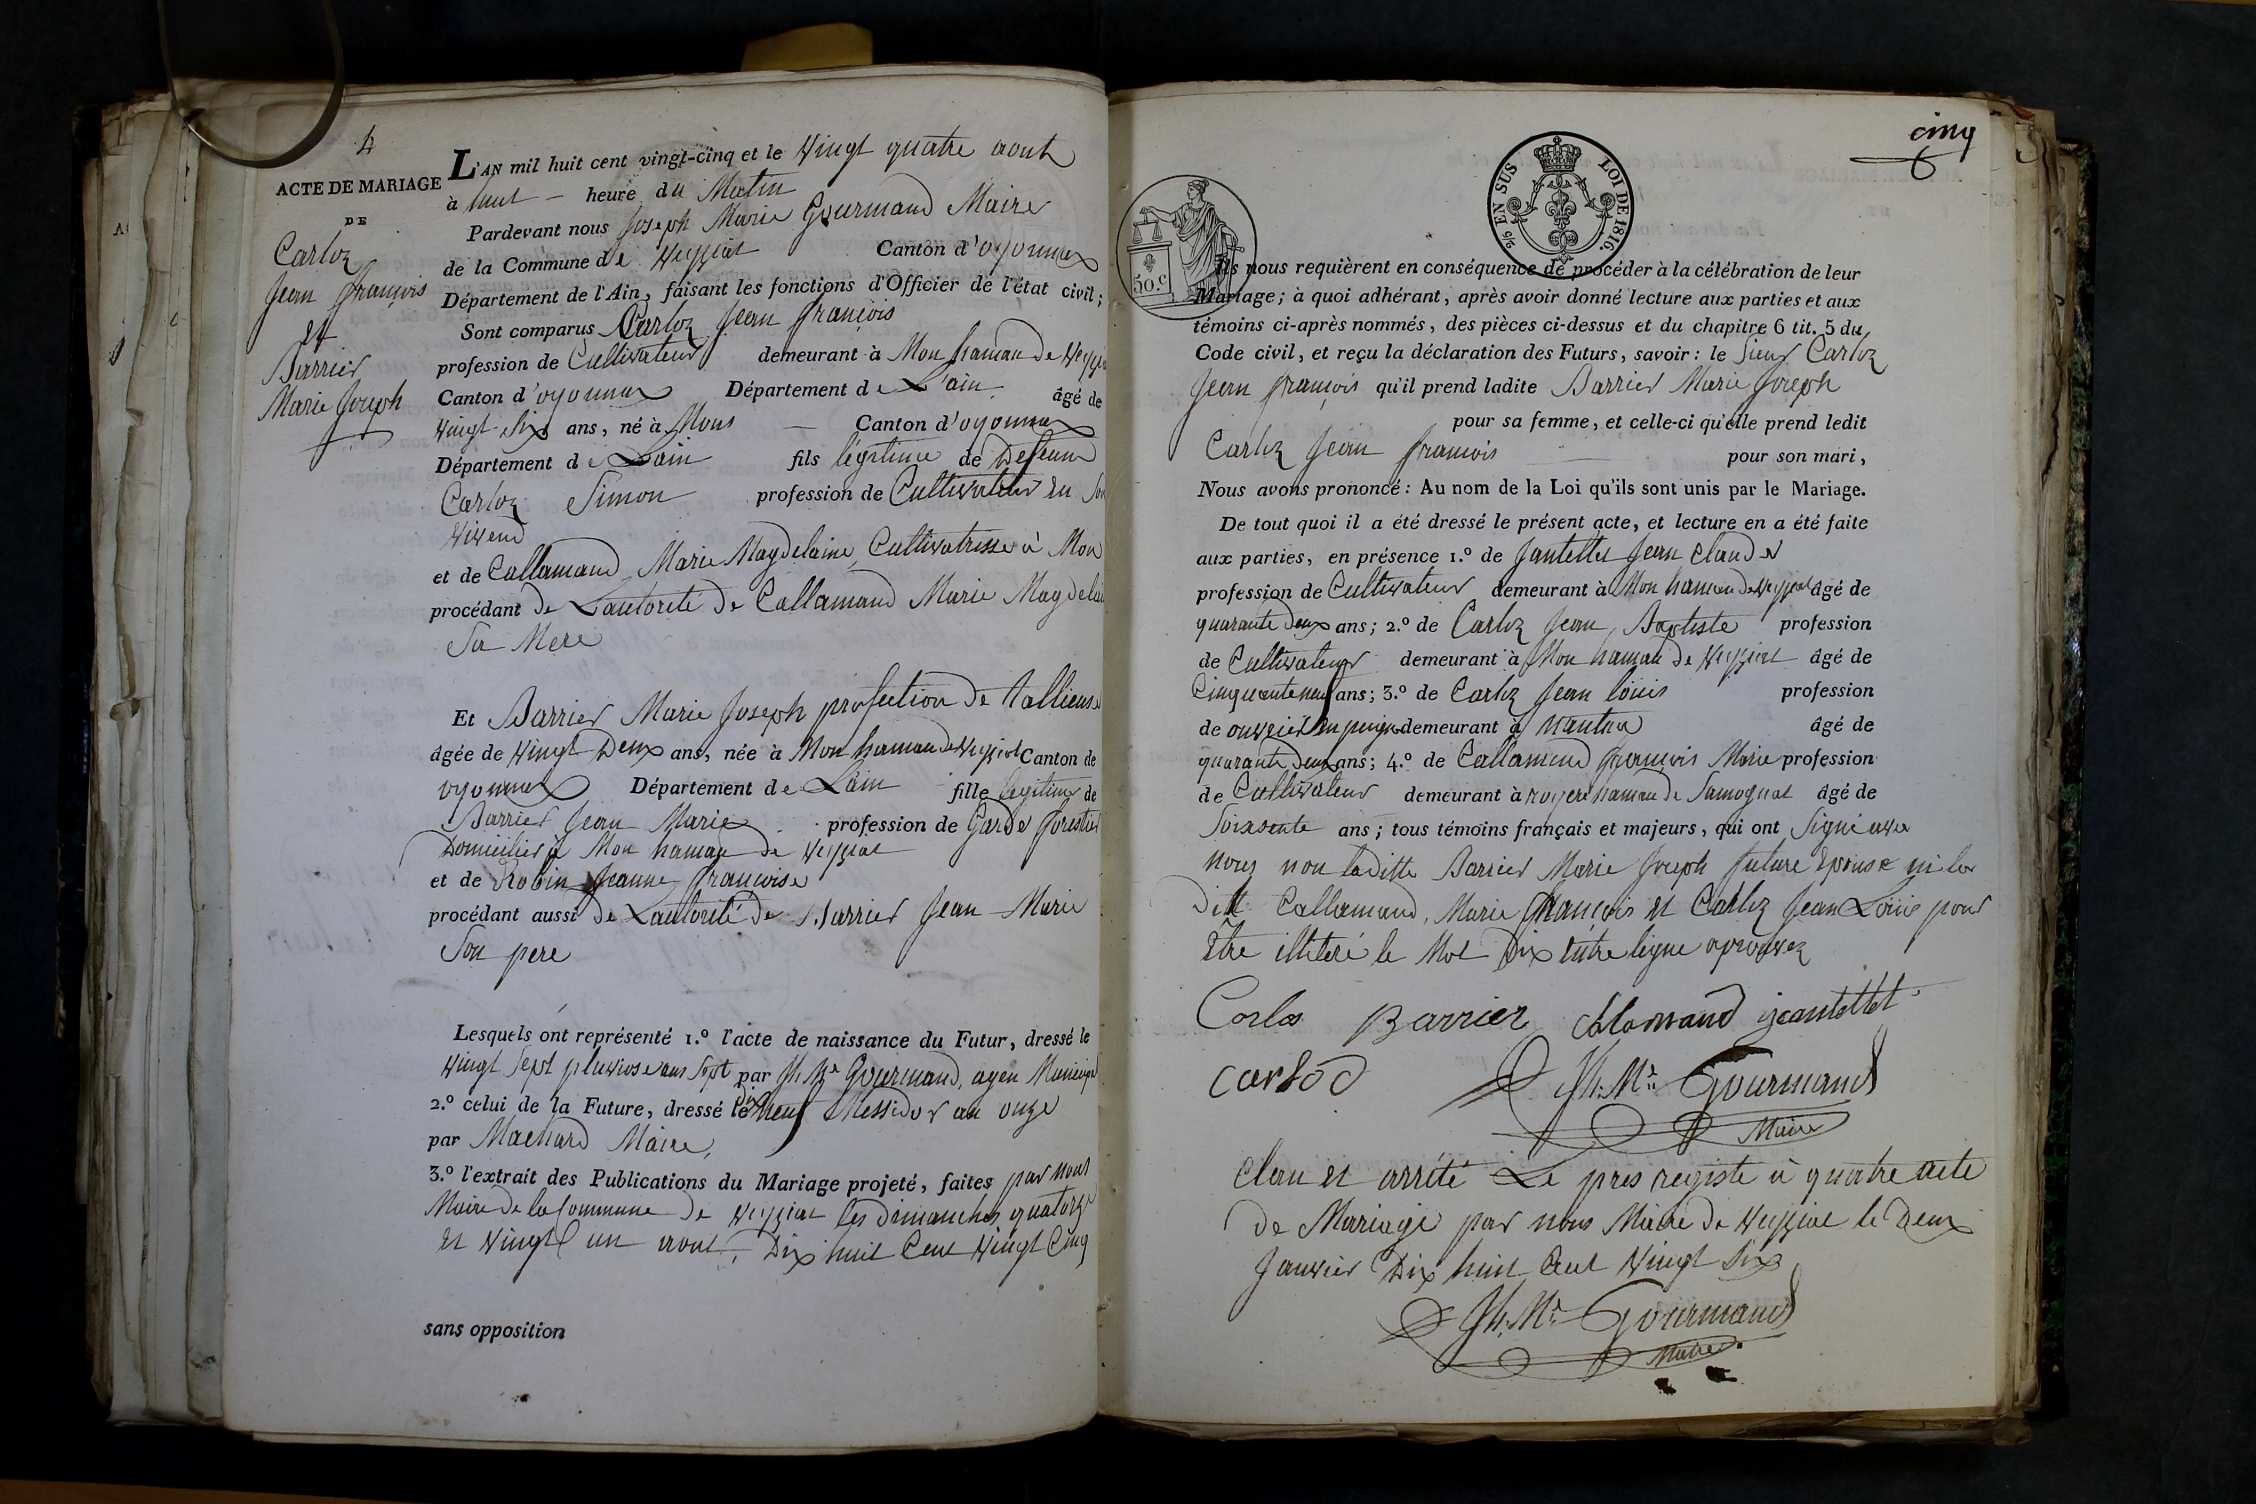 4
ACTE DE MARIAGE
DE
Carloz
Jean françois
et
Barrier
Marie Joseph
L'AN mil huit cent vingt-cinq et le vingt quatre aout
à huit heure du Matin
Pardevant nous Joseph Marie Gourmand Maire
de la Commune de Veyziat Canton d'oyonnax
Département de l'Ain, faisant les fonctions d'Officier de l'état civil;
Sont comparus Carloz Jean françois
profession de Cultivateur demeurant à Mon hamau de Veyzia
Canton d'oyonnax Département de Lain âgé de
vingt Six ans, né à Mons Canton d'oyonnax
Département de Lain fils légitime de Defeunt
Carloz Simon profession de Cultivateur en Son
vivend
et de Callamand Marie Magdelaine Cultivatrisse à Mon
procédant de Lautorité de Callamand Marie Magdelai
Sa Mere
Et Barrier Marie Joseph profection de talliense
âgée de vingt Deux ans, née à Mon hamau de Veyziat Canton de
oyonnax Département de Lain fille legitime de
Barrier Jean Marie profession de Garde forestier
Domicilier à Mon hamau de Veyziat
et de Robin Jeanne françoise
procédant aussi de Lautorité de Barrier Jean Marie
Son pere
Lesquels ont représenté 1.º l'acte de naissance du Futur, dressé le
vingt Sept pluviose ans Sept par Jh Me Gourmand, agen Municipal
2.º celui de la Future, dressé le Dix neuf Messidor an onze
par Machard Maire,
3.º l'extrait des Publications du Mariage projeté, faites par nous
Maire de la Commune de Veyziat les dimanches quatorze
et vingt un aout, Dix huit Cent vingt Cinq
sans opposition
cinq
EN SUS LOI DE 1816.
50.c
Ils nous requièrent en conséquence de procéder à la célébration de leur
Mariage; à quoi adhérant, après avoir donné lecture aux parties et aux
témoins ci-après nommés, des pièces ci-dessus et du chapitre 6 tit. 5 du
Code civil, et reçu la déclaration des Futurs, savoir: le Sieur Carloz
Jean françois qu'il prend ladite Barrier Marie Joseph
pour sa femme, et celle-ci qu'elle prend ledit
Carloz Jean francois pour son mari,
Nous avons prononcé: Au nom de la Loi qu'ils sont unis par le Mariage.
De tout quoi il a été dressé le présent acte, et lecture en a été faite
aux parties, en présence 1.º de Jantellet Jean Claude
profession de Cultivateur demeurant à Mon hamau de Veyziat âgé de
quarante Deux ans; 2.º de Carloz Jean Baptiste profession
de Cultivateur demeurant à Mon hamau de Veyziat âgé de
Cinquante neuf ans; 3.º de Carloz Jean louis profession
de ouvrier en peigne demeurant à nantua âgé de
quarante Deux ans; 4.º de Callamand françois Marie profession
de Cultivateur demeurant à rogere hamau de Samognat âgé de
Soixsente ans; tous témoins français et majeurs, qui ont Signé avec
nous non laditte Barrier Marie Joseph future Epouse ni les
Ditt Callamand, Marie françois et Carloz Jean Louis pour
Etre illiteré le Mot Dix entre ligne aprouvez
Carlos Barrier Jeantellet
carlod Jh. Me. Gourmand
Maire
Clau et arrété Le pres registe à quatre acte
de Mariage par nous Maire de Veyziat le Deux
Janvier Dix huit Cent vingt Six
Jh. Me. Gourmand
Maire